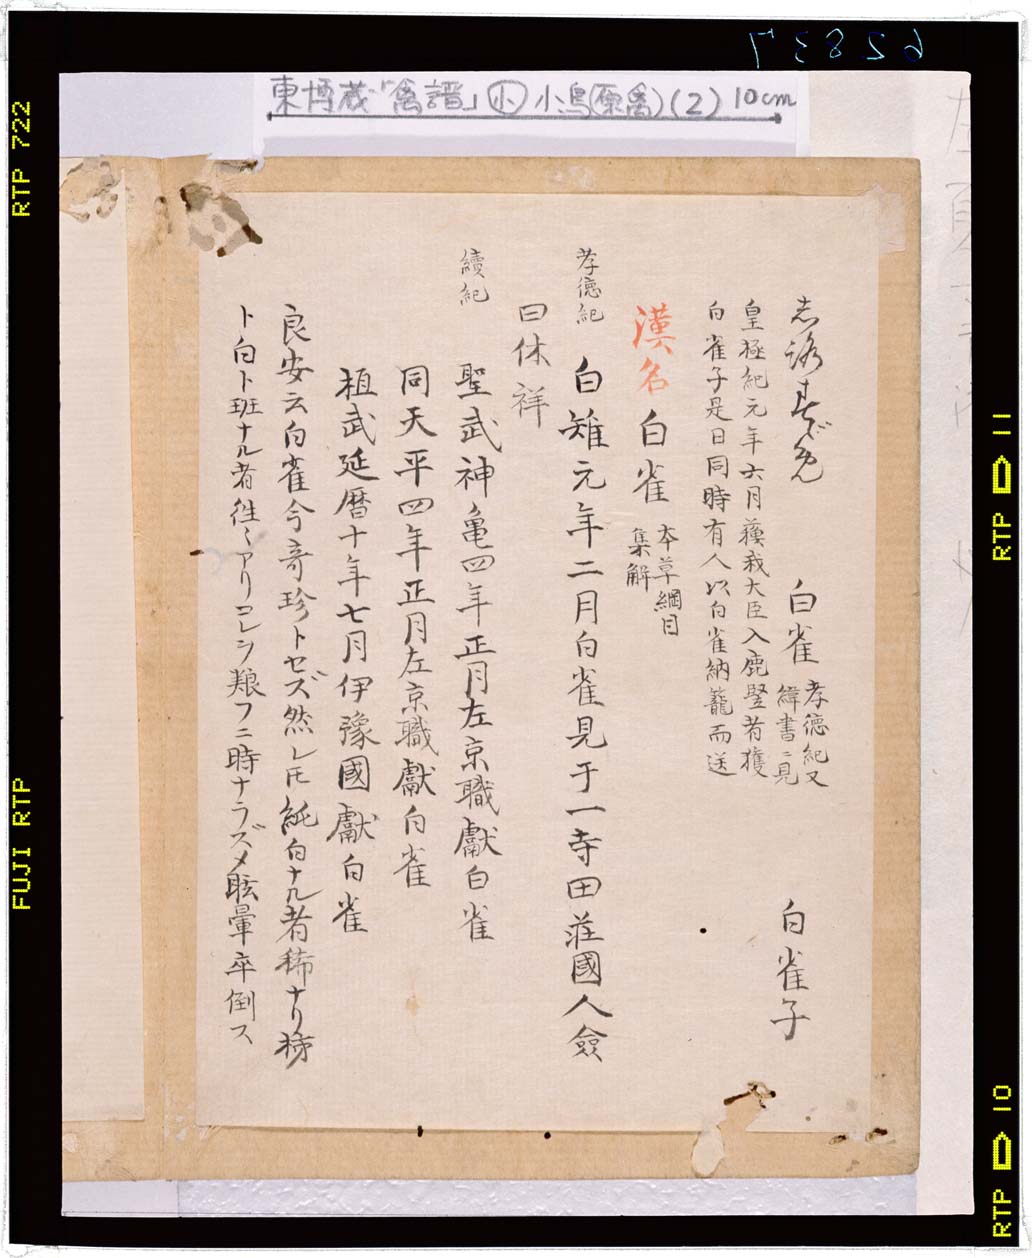 62837
東博蔵「禽譜」㋛小鳥(原禽)(2) 10cm
志ろすゞめ 白雀 孝徳紀又緯書ニ見 白雀子
皇極紀元年六月蘓我大臣入鹿豎者獲
白雀子是日同時有人以白雀納籠而送
漢名 白雀 本草綱目集解
孝徳紀 白雉元年二月白雀見于一寺田荘國人僉
曰休祥
續紀 聖武神亀四年正月左京職獻白雀
同天平四年正月左京職獻白雀
桓武延暦十年七月伊豫國獻白雀
良安云白雀今奇珍トセズ然レ𪜈純白ナル者稀ナリ
ト白ト班ナル者徃〻アリコレヲ粮フニ時ナラズメ眩暈卒倒ス
RTP 722
FUJI RTP
RTP 11
RTP 10